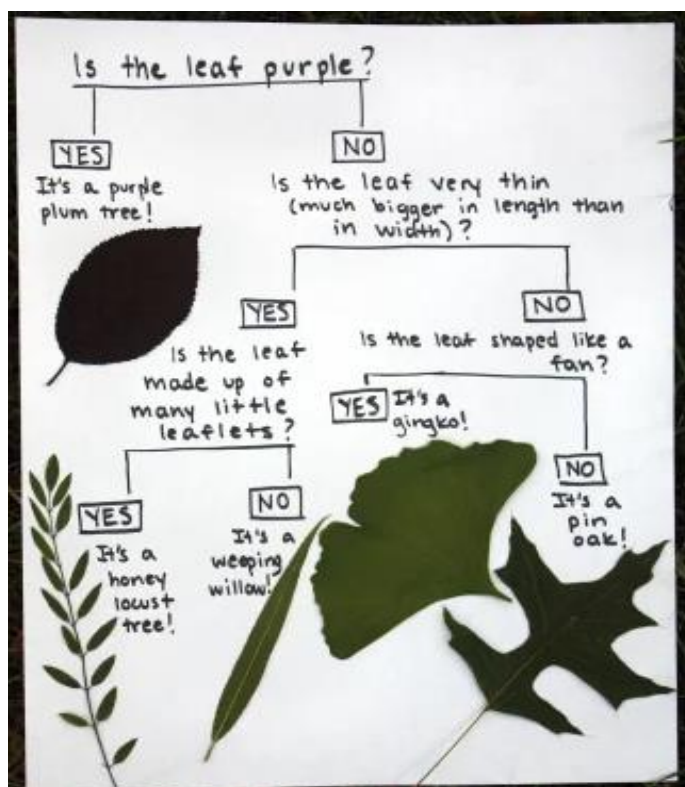 Is the leaf purple?
YES
It's a purple
plum tree!
NO
Is the leaf very thin
(much bigger in length than
in width)?
YES
Is the leaf
made up of
many little
leaflets?
YES
It's a
honey
locust
tree!
NO
It's a
weeping
willow!
NO
Is the leaf shaped like a
fan?
YES
It's a
gingko!
NO
It's a
pin
oak!